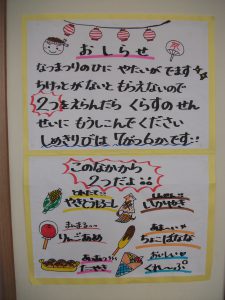 おしらせ
なつまつりのひに やたいがでます
ちけっとがないと もらえないので
2つをえらんだら くらすのせん
せいに もうしこんでください
しめきりびは 7がつ6かです
このなかから
2つだよ
やきとうもろこし
さかやき
まんまる
りんごあめ
あまーい
ちょこばなな
たーやき
おいしい
くれーぷ